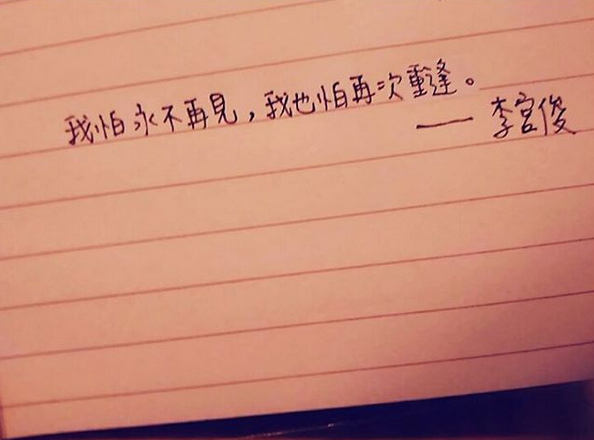 我怕永不再見，我也怕再次重逢。
—— 李宮俊